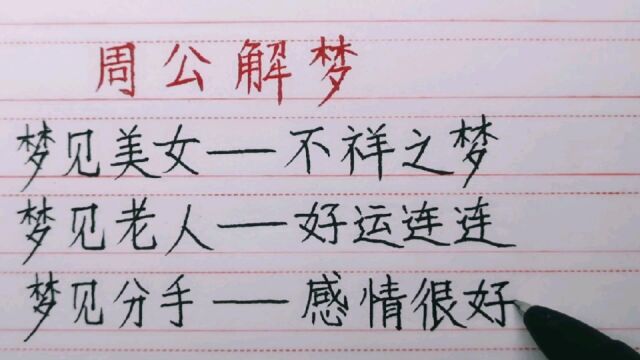 周公解梦
梦见美女——不祥之梦
梦见老人——好运连连
梦见分手——感情很好